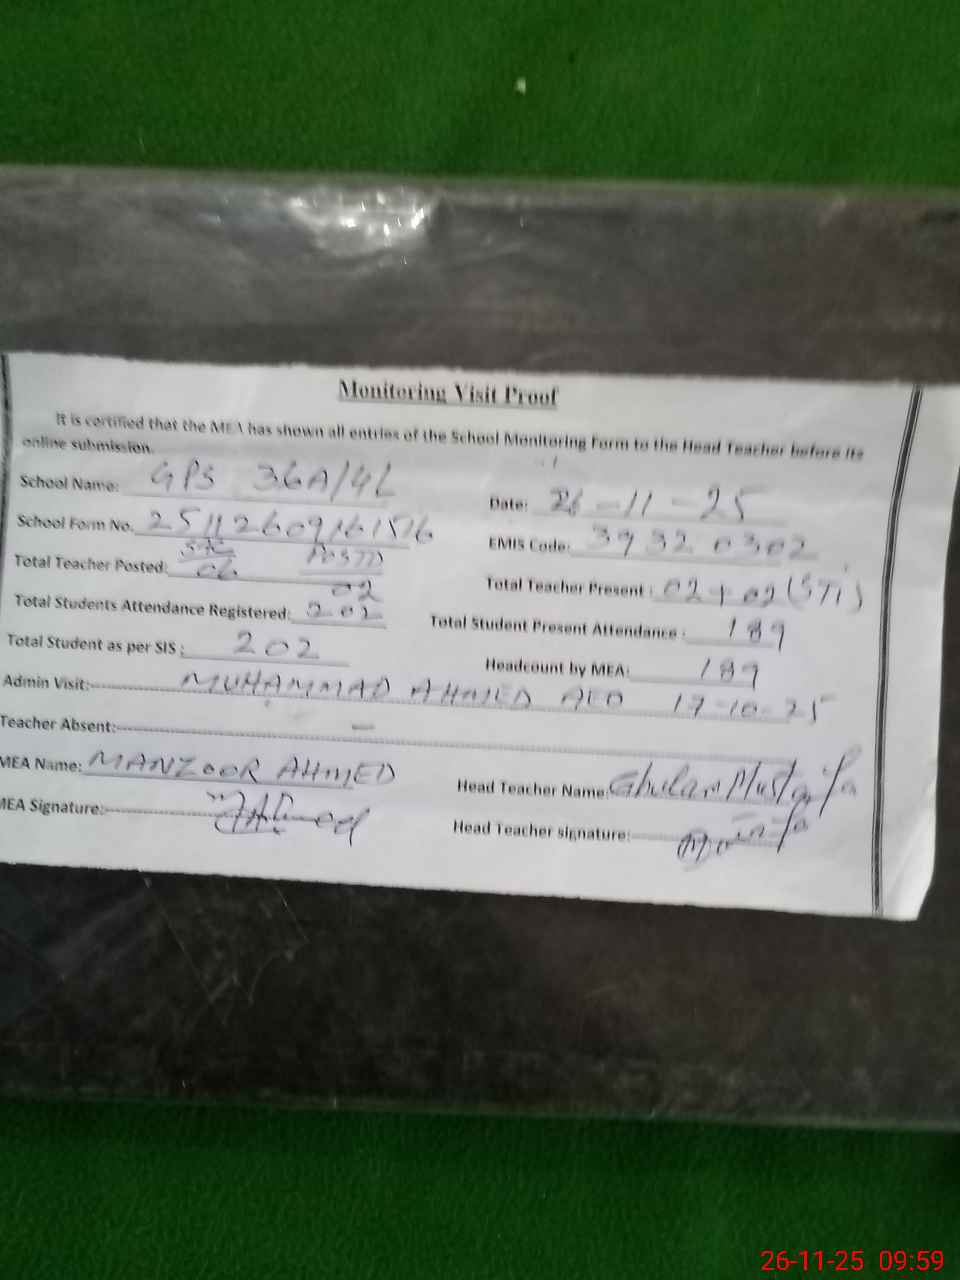 Monitoring Visit Proof
It is certified that the MEA has shown all entries of the School Monitoring Form to the Head Teacher before its
online submission.
School Name: GPS 36A/4L
Date: 26-11-25
School Form No. 25112609161516
EMIS Code: 39320302
Total Teacher Posted: 04 POSTD 02
Total Teacher Present: 02+02(STI)
Total Students Attendance Registered: 202
Total Student Present Attendance: 189
Total Student as per SIS: 202
Headcount by MEA: 189
Admin Visit: MUHAMMAD AHMED AEO 17-10-25
Teacher Absent: —
MEA Name: MANZOOR AHMED
Head Teacher Name: Ghulam Mustafa
MEA Signature:
Head Teacher signature:
26-11-25 09:59